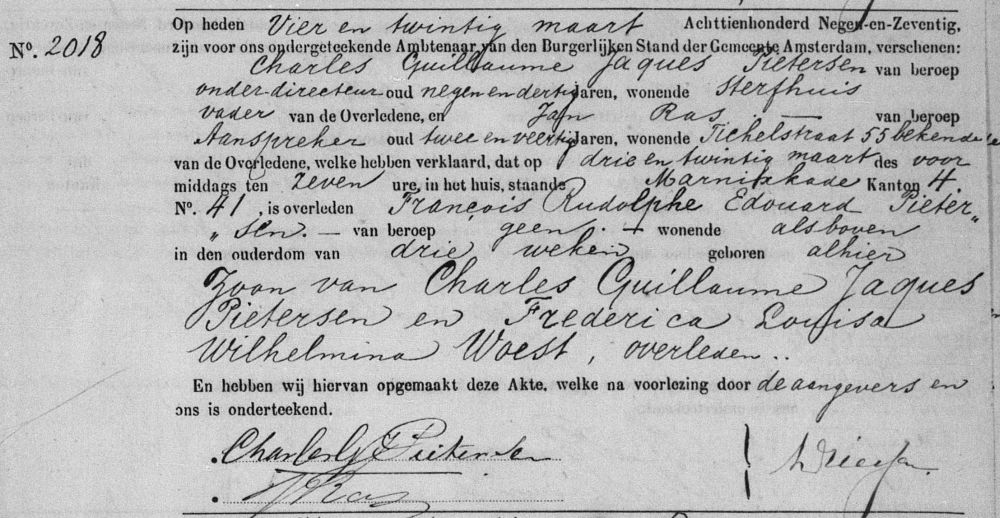 Op heden Vier en twintig maart Achttienhonderd Negen-en-Zeventig,
Nº. 2018
zijn voor ons ondergeteekende Ambtenaar van den Burgerlijken Stand der Gemeente Amsterdam, verschenen:
Charles Guillaume Jaques Pietersen van beroep
onder-directeur oud negen en dertig Jaren, wonende Sterfhuis
vader van de Overledene, en Jan Ras. — van beroep
Aanspreker oud twee en veertig Jaren, wonende Tichelstraat 55 bekende
van de Overledene, welke hebben verklaard, dat op drie en twintig maart des voor
middags ten zeven ure, in het huis, staande Marnixkade Kanton 4.
Nº. 41, is overleden François Rudolphe Edouard Pieter„
„ sen. — van beroep geen. — wonende als boven
in den ouderdom van drie weken geboren alhier
Zoon van Charles Guillaume Jaques
Pietersen en Frederica Louisa
Wilhelmina Woest, overleden..
En hebben wij hiervan opgemaakt deze Akte, welke na voorlezing door de aangevers en
ons is onderteekend.
Pietersen
JRas